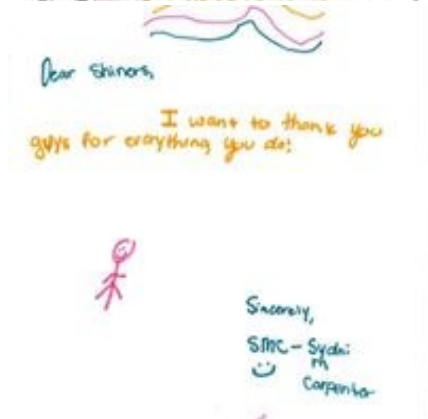 Dear Shiners,
I want to thank you
guys for everything you do!
Sincerely,
SMC - Sydni
m
Carpenter